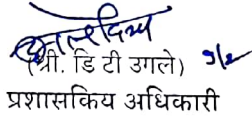 (श्री. डि टी उगले)
प्रशासकिय अधिकारी